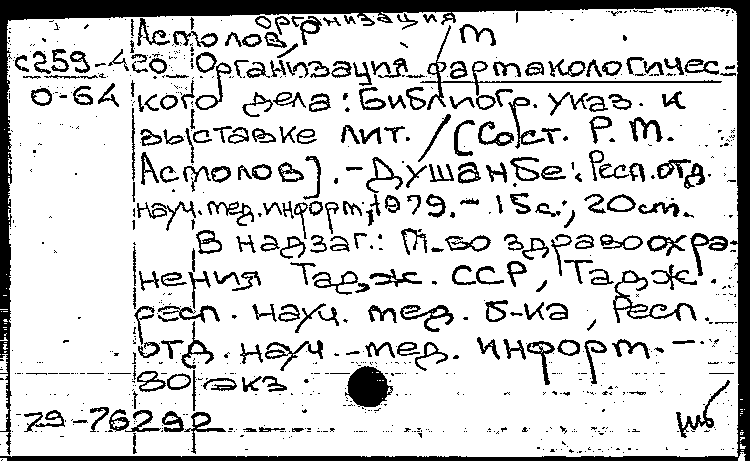 организация
Астолов, Р м
с259-420 Организация фармакологичес-
О-64 кого дела: Библиогр. указ. к
выставке лит. / [Сост. Р. М.
Астолов]. - Душанбе: Респ. отд.
науч. мед. информ, 1979. - 15 с.; 20 см.
В надзаг.: М-во здравоохра-
нения Тадж. ССР, Тадж.
респ. науч. мед. б-ка, Респ.
отд. науч.-мед. информ. -
80 экз.
79-76292